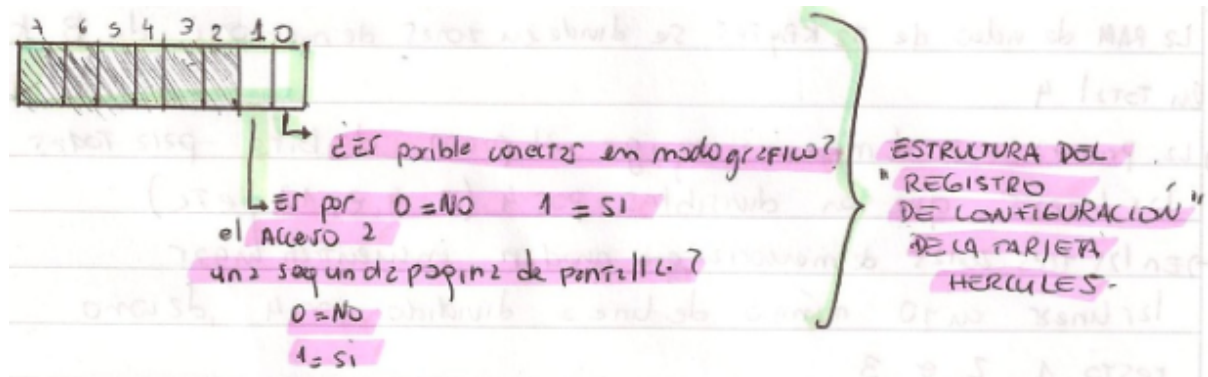 7 6 5 4 3 2 1 0
¿Es posible conectar en modo gráfico?
Es por 0 = NO 1 = SI
el Acceso a
una segunda pagina de pantalla.?
0 = No
1 = Si
ESTRUCTURA DEL
" REGISTRO
DE CONFIGURACIÓN "
DE LA TARJETA
HERCULES.